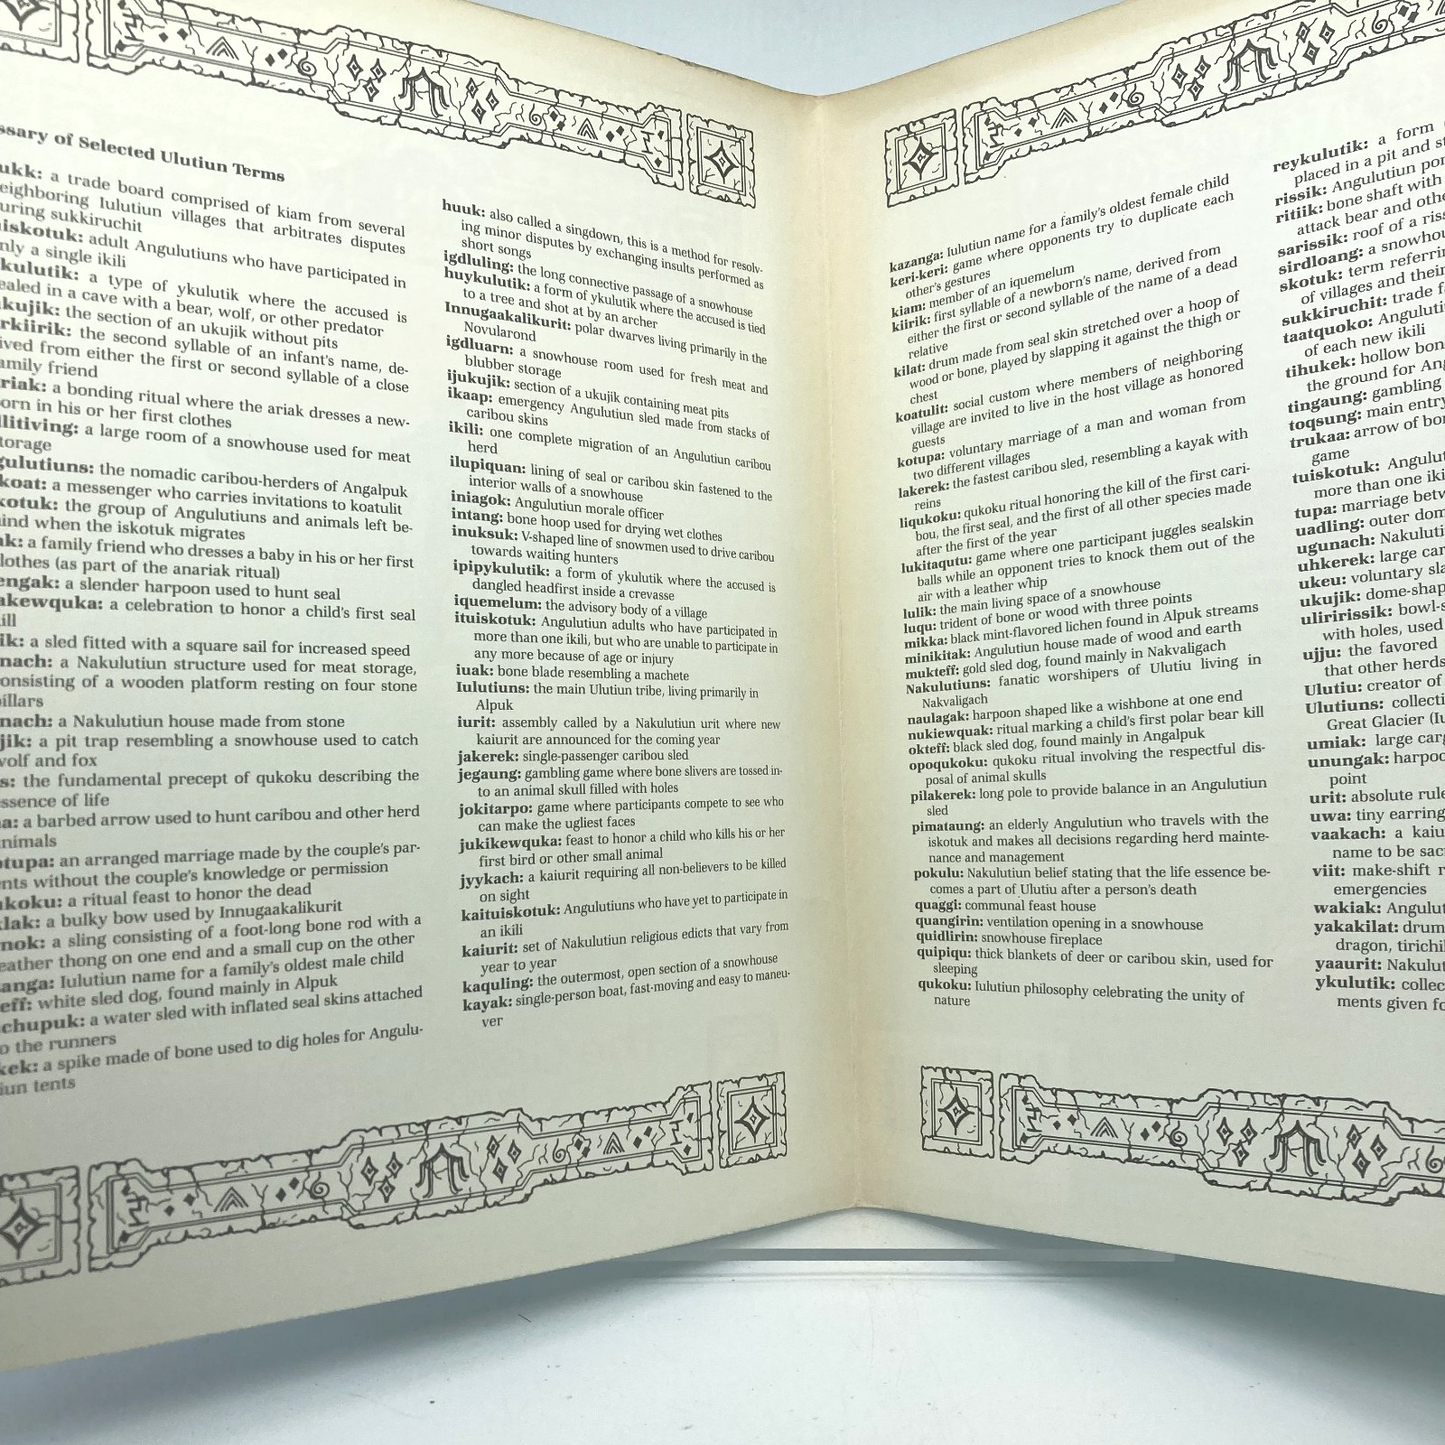 ssary of Selected Ulutiun Terms
ukk: a trade board comprised of kiam from several
eighboring Iulutiun villages that arbitrates disputes
uring sukkiruchit
iskotuk: adult Angulutiuns who have participated in
nly a single ikili
kulutik: a type of ykulutik where the accused is
ealed in a cave with a bear, wolf, or other predator
kujik: the section of an ukujik without pits
rkiirik: the second syllable of an infant's name, de-
ived from either the first or second syllable of a close
amily friend
riak: a bonding ritual where the ariak dresses a new-
orn in his or her first clothes
llitiving: a large room of a snowhouse used for meat
torage
gulutiuns: the nomadic caribou-herders of Angalpuk
koat: a messenger who carries invitations to koatulit
kotuk: the group of Angulutiuns and animals left be-
ind when the iskotuk migrates
ak: a family friend who dresses a baby in his or her first
lothes (as part of the anariak ritual)
engak: a slender harpoon used to hunt seal
akewquka: a celebration to honor a child's first seal
ill
ik: a sled fitted with a square sail for increased speed
nach: a Nakulutiun structure used for meat storage,
onsisting of a wooden platform resting on four stone
pillars
nach: a Nakulutiun house made from stone
jik: a pit trap resembling a snowhouse used to catch
wolf and fox
s: the fundamental precept of qukoku describing the
ssence of life
a: a barbed arrow used to hunt caribou and other herd
nimals
otupa: an arranged marriage made by the couple's par-
nts without the couple's knowledge or permission
ukoku: a ritual feast to honor the dead
klak: a bulky bow used by Innugaakalikurit
nok: a sling consisting of a foot-long bone rod with a
eather thong on one end and a small cup on the other
anga: Iulutiun name for a family's oldest male child
eff: white sled dog, found mainly in Alpuk
chupuk: a water sled with inflated seal skins attached
o the runners
kek: a spike made of bone used to dig holes for Angulu-
iun tents
huuk: also called a singdown, this is a method for resolv-
ing minor disputes by exchanging insults performed as
short songs
igdluling: the long connective passage of a snowhouse
huykulutik: a form of ykulutik where the accused is tied
to a tree and shot at by an archer
Innugaakalikurit: polar dwarves living primarily in the
Novularond
igdluarn: a snowhouse room used for fresh meat and
blubber storage
ijukujik: section of a ukujik containing meat pits
ikaap: emergency Angulutiun sled made from stacks of
caribou skins
ikili: one complete migration of an Angulutiun caribou
herd
ilupiquan: lining of seal or caribou skin fastened to the
interior walls of a snowhouse
iniagok: Angulutiun morale officer
intang: bone hoop used for drying wet clothes
inuksuk: V-shaped line of snowmen used to drive caribou
towards waiting hunters
ipipykulutik: a form of ykulutik where the accused is
dangled headfirst inside a crevasse
iquemelum: the advisory body of a village
ituiskotuk: Angulutiun adults who have participated in
more than one ikili, but who are unable to participate in
any more because of age or injury
iuak: bone blade resembling a machete
Iulutiuns: the main Ulutiun tribe, living primarily in
Alpuk
iurit: assembly called by a Nakulutiun urit where new
kaiurit are announced for the coming year
jakerek: single-passenger caribou sled
jegaung: gambling game where bone slivers are tossed in-
to an animal skull filled with holes
jokitarpo: game where participants compete to see who
can make the ugliest faces
jukikewquka: feast to honor a child who kills his or her
first bird or other small animal
jyykach: a kaiurit requiring all non-believers to be killed
on sight
kaituiskotuk: Angulutiuns who have yet to participate in
an ikili
kaiurit: set of Nakulutiun religious edicts that vary from
year to year
kaquling: the outermost, open section of a snowhouse
kayak: single-person boat, fast-moving and easy to maneu-
ver
kazanga: Iulutiun name for a family's oldest female child
keri-keri: game where opponents try to duplicate each
other's gestures
kiam: member of an iquemelum
kiirik: first syllable of a newborn's name, derived from
either the first or second syllable of the name of a dead
relative
kilat: drum made from seal skin stretched over a hoop of
wood or bone, played by slapping it against the thigh or
chest
koatulit: social custom where members of neighboring
village are invited to live in the host village as honored
guests
kotupa: voluntary marriage of a man and woman from
two different villages
lakerek: the fastest caribou sled, resembling a kayak with
reins
liqukoku: qukoku ritual honoring the kill of the first cari-
bou, the first seal, and the first of all other species made
after the first of the year
lukitaqutu: game where one participant juggles sealskin
balls while an opponent tries to knock them out of the
air with a leather whip
lulik: the main living space of a snowhouse
luqu: trident of bone or wood with three points
mikka: black mint-flavored lichen found in Alpuk streams
minikitak: Angulutiun house made of wood and earth
mukteff: gold sled dog, found mainly in Nakvaligach
Nakulutiuns: fanatic worshipers of Ulutiu living in
Nakvaligach
naulagak: harpoon shaped like a wishbone at one end
nukiewquak: ritual marking a child's first polar bear kill
okteff: black sled dog, found mainly in Angalpuk
opoqukoku: qukoku ritual involving the respectful dis-
posal of animal skulls
pilakerek: long pole to provide balance in an Angulutiun
sled
pimataung: an elderly Angulutiun who travels with the
iskotuk and makes all decisions regarding herd mainte-
nance and management
pokulu: Nakulutiun belief stating that the life essence be-
comes a part of Ulutiu after a person's death
quaggi: communal feast house
quangirin: ventilation opening in a snowhouse
quidlirin: snowhouse fireplace
quipiqu: thick blankets of deer or caribou skin, used for
sleeping
qukoku: Iulutiun philosophy celebrating the unity of
nature
reykulutik: a form
placed in a pit and st
rissik: Angulutiun por
ritiik: bone shaft with
attack bear and othe
sarissik: roof of a riss
sirdloang: a snowhou
skotuk: term referrin
of villages and their
sukkiruchit: trade fa
taatquoko: Angulutiu
of each new ikili
tihukek: hollow bon
the ground for Ang
tingaung: gambling
toqsung: main entry
trukaa: arrow of bor
game
tuiskotuk: Angulut
more than one iki
tupa: marriage betv
uadling: outer dom
ugunach: Nakuluti
uhkerek: large car
ukeu: voluntary sla
ukujik: dome-shap
uliririssik: bowl-s
with holes, used
ujju: the favored
that other herds
Ulutiu: creator of
Ulutiuns: collecti
Great Glacier (Iu
umiak: large carg
unungak: harpoo
point
urit: absolute rule
uwa: tiny earring
vaakach: a kaiu
name to be sac
viit: make-shift r
emergencies
wakiak: Angulut
yakakilat: drum
dragon, tirichil
yaaurit: Nakulut
ykulutik: collec
ments given fo